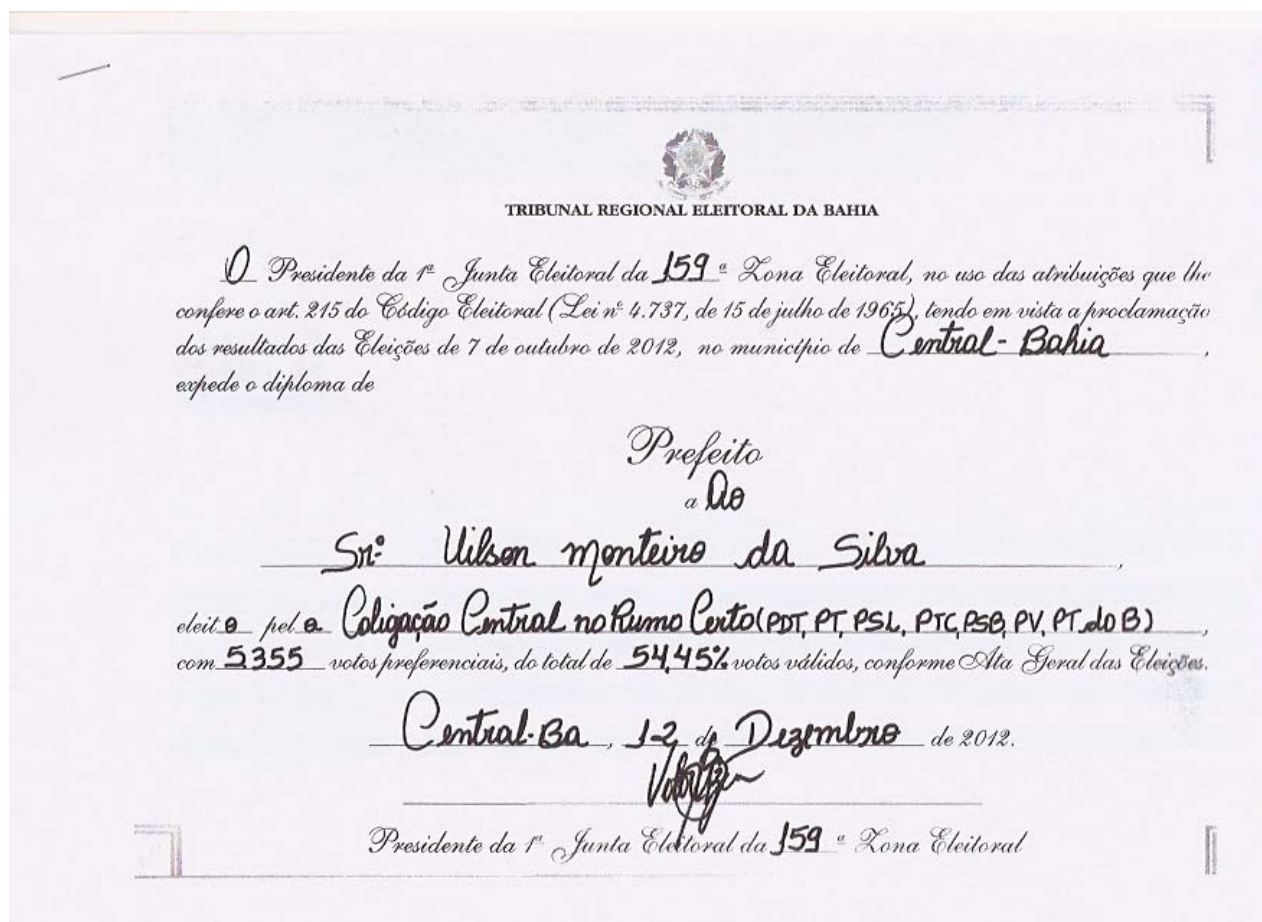 TRIBUNAL REGIONAL ELEITORAL DA BAHIA
O Presidente da 1ª Junta Eleitoral da 159 ª Zona Eleitoral, no uso das atribuições que lhe
confere o art. 215 do Código Eleitoral (Lei nº 4.737, de 15 de julho de 1965), tendo em vista a proclamação
dos resultados das Eleições de 7 de outubro de 2012, no município de Central - Bahia ,
expede o diploma de
Prefeito
a ao
Sr.º Uilson Monteiro da Silva ,
eleit o pel a Coligação Central no Rumo Certo (PDT, PT, PSL, PTC, PSB, PV, PT do B) ,
com 5355 votos preferenciais, do total de 54,45% votos válidos, conforme Ata Geral das Eleições.
Central-Ba , 12 de Dezembro de 2012.
Presidente da 1ª Junta Eleitoral da 159 ª Zona Eleitoral